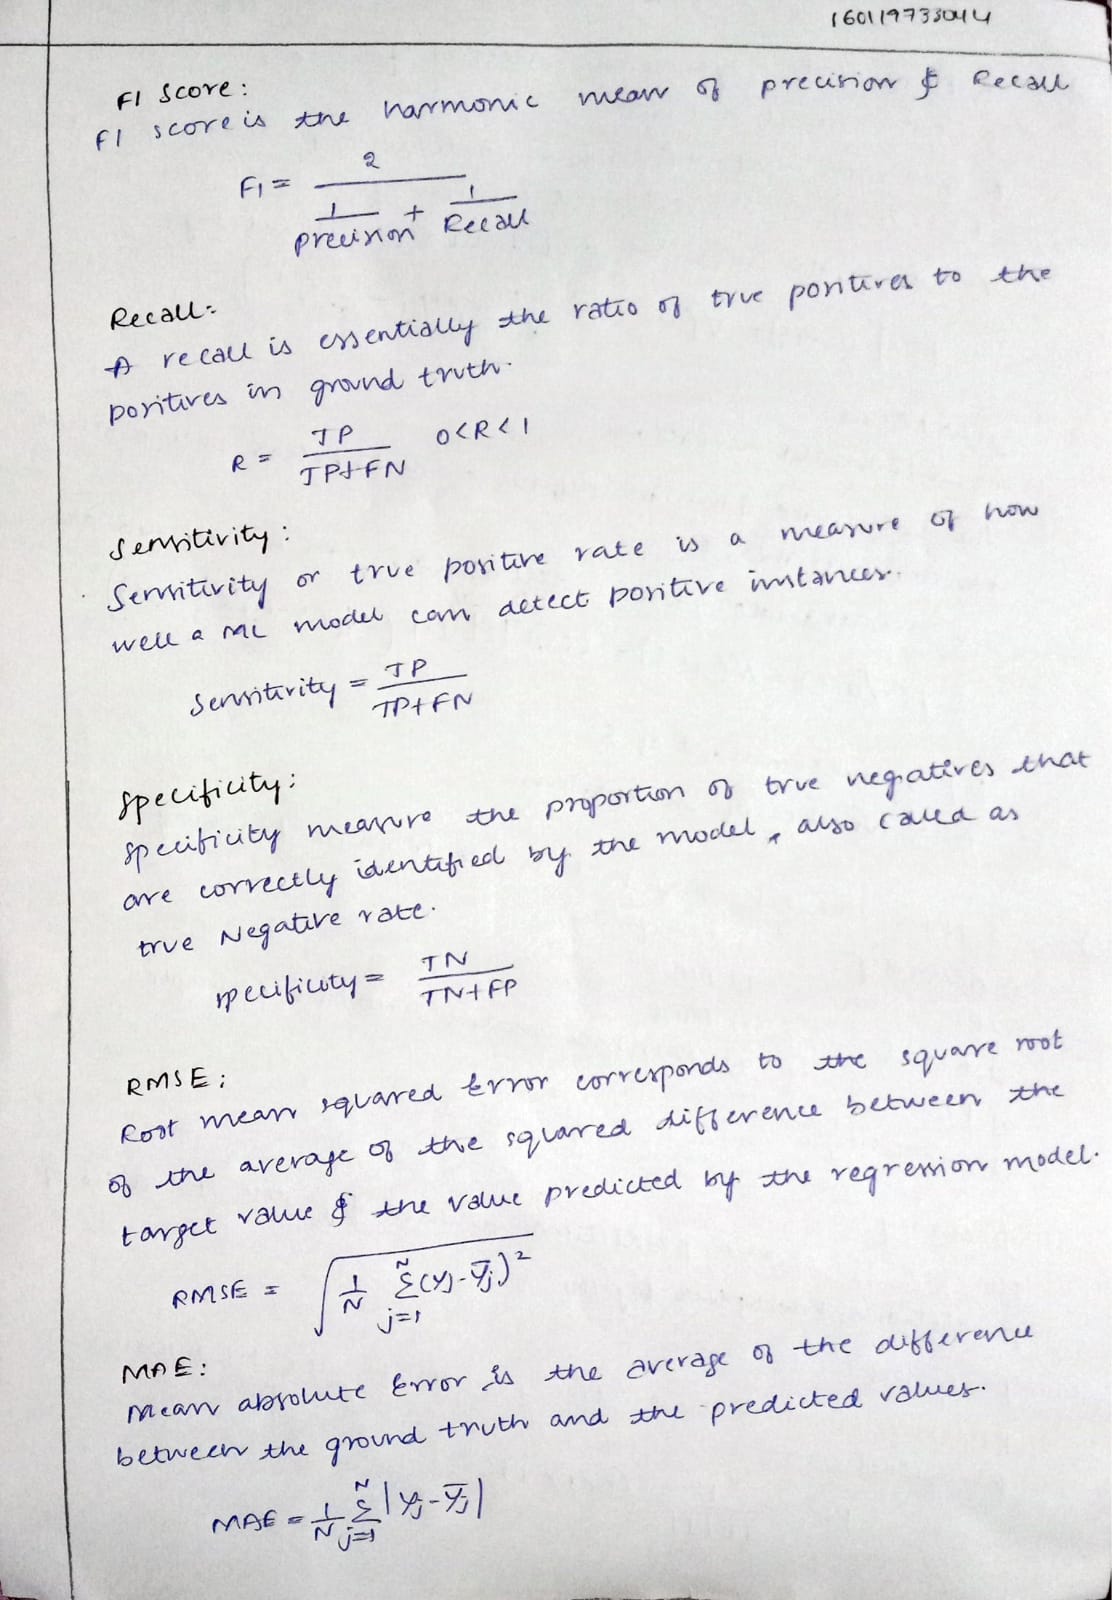 160119733044
F1 Score:
F1 score is the harmonic mean of precision & Recall
F1 = 2 / (1/precision + 1/Recall)
Recall:
A recall is essentially the ratio of true positives to the
positives in ground truth.
R = TP / TP+FN 0<R<1
Sensitivity:
Sensitivity or true positive rate is a measure of how
well a ML model can detect positive instances.
Sensitivity = TP / TP+FN
Specificity:
Specificity measure the proportion of true negatives that
are correctly identified by the model, also called as
true Negative rate.
specificity = TN / TN+FP
RMSE:
Root mean squared Error corresponds to the square root
of the average of the squared difference between the
target value & the value predicted by the regression model.
RMSE = √(1/N Σ_{j=1}^{N} (yj - ȳj)²)
MAE:
Mean absolute Error is the average of the difference
between the ground truth and the predicted values.
MAE = 1/N Σ_{j=1}^{N} |yj - ȳj|